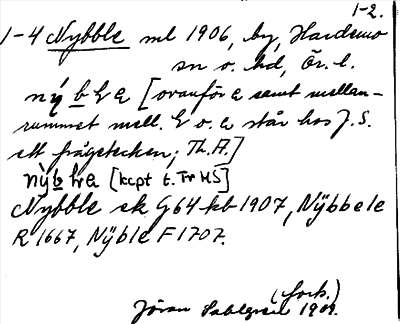 1-2.
1-4 Nybble ml 1906, by, Hardemo
sn o. hd, Ör. l.
[ovanför a samt mellan-
rummet mell. l o. a står hos J. S.
ett frågetecken; Th. A.]
[kcpt t. Tr HS]
Nybble ek G64 kb 1907, Nÿbbele
R 1667, Nÿble F 1707.
(fork.)
Jöran Sahlgren 1909.